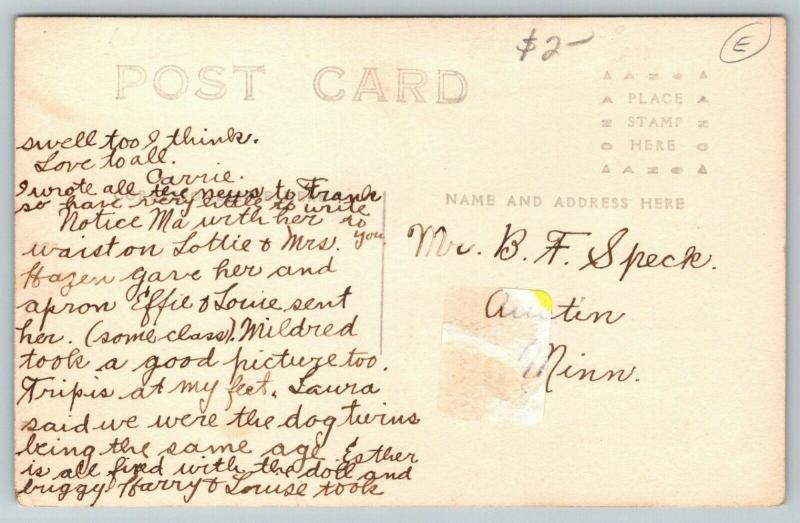 $2-
E
POST CARD
AZO
PLACE
STAMP
HERE
AZO
swell too I think.
Love to all.
Carrie.
I wrote all the news to Frank
so have very little to write
to you.
Notice Ma with her
waist on Lottie & Mrs.
Hazen gave her and
apron Effie & Louie sent
her. (some class). Mildred
took a good picture too.
Trip is at my feet. Laura
said we were the dog twins
being the same age. Esther
is all fixed with the doll and
buggy. Harry & Louise took
NAME AND ADDRESS HERE
Mr. B. F. Speck.
Austin
Minn.